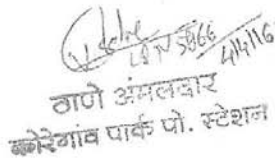 4/4/16
ठाणे अंमलदार
कोरेगांव पार्क पो. स्टेशन